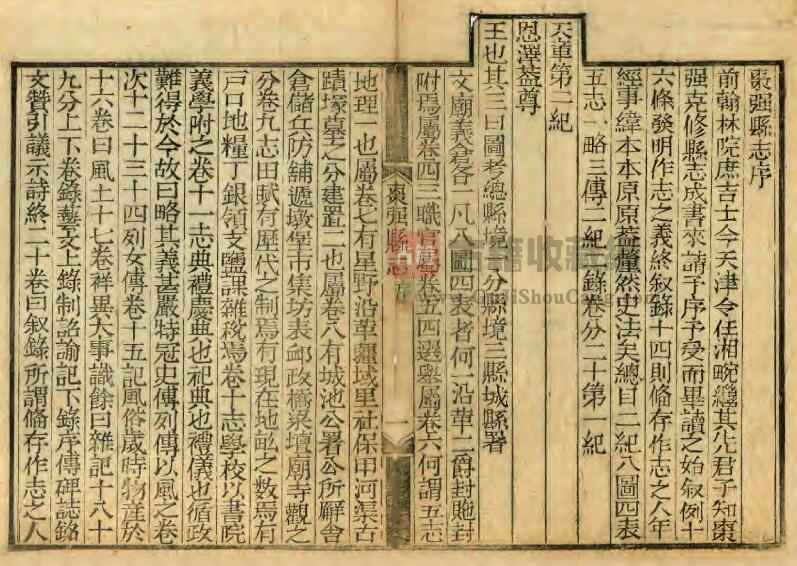 棗强縣志序
前翰林院庶吉士今天津令任湘畹繼其先君子知棗
强克修縣志成書來請予序予受而畢讀之始叙例十
六條發明作志之義終叙錄十四則偹存作志之人年
經事緯本本原原蓋釐然史法矣總目二紀八圖四表
五志一略三傳二紀一錄卷分二十第一紀
天章第二紀
恩澤蓋尊
王也其三曰圖考總縣境一分縣境三縣城縣署
文廟義倉各一凡八圖四表者何一沿革二爵封貤封
附焉屬卷四三職官屬卷五四選舉屬卷六何謂五志
棗强縣志 序 一
地理一也屬卷七有星野沿革疆域里社保甲河渠古
蹟塚墓之分建置二也屬卷八有城池公署公所廨舍
倉儲兵防鋪遞墩堡市集坊表郵政橋梁壇廟寺觀之
分卷九志田賦有歷代之制焉有現在地畝之數焉有
戸口地糧丁銀領支鹽課雜稅焉卷十志學校以書院
義學附之卷十一志典禮慶典也祀典也禮儀也循政
難得於今故曰略其義甚嚴特冠史傳列傳以風之卷
次十二十三十四列女傳卷十五記風俗歲時物產於
十六卷曰風土十七卷祥異大事識餘曰雜記十八十
九分上下卷錄藝文上錄制詔諭記下錄序傳碑誌銘
文贊引議示詩終二十卷曰叙錄所謂偹存作志之人
古籍收藏
GujiShouCang.com